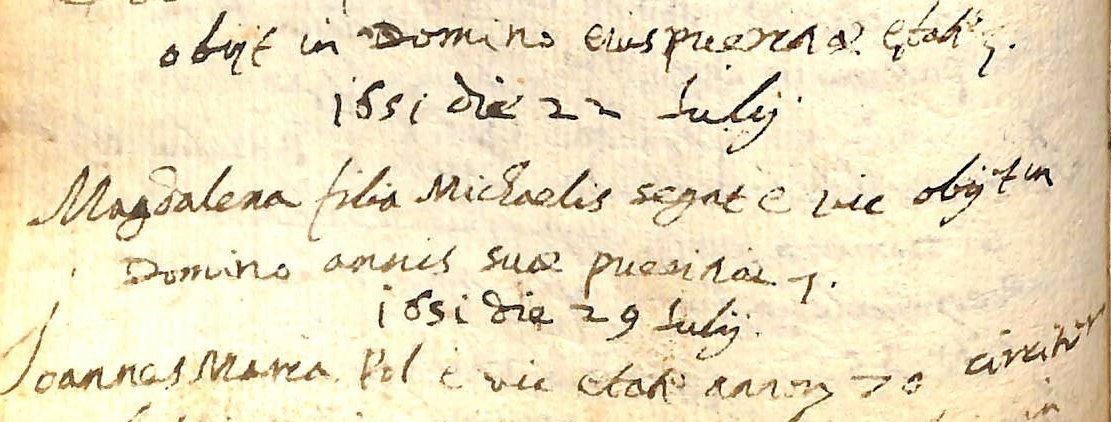 obijt in Domino eius pueritiæ ętatis
1651 die 22 Iulij
Magdalena filia Michaelis segat e vic obijt in
Domino annis suæ pueritiæ 7.
1651 die 29 Iulij.
Joannes Maria Pol e vic etatis annorum 70 circiter
in